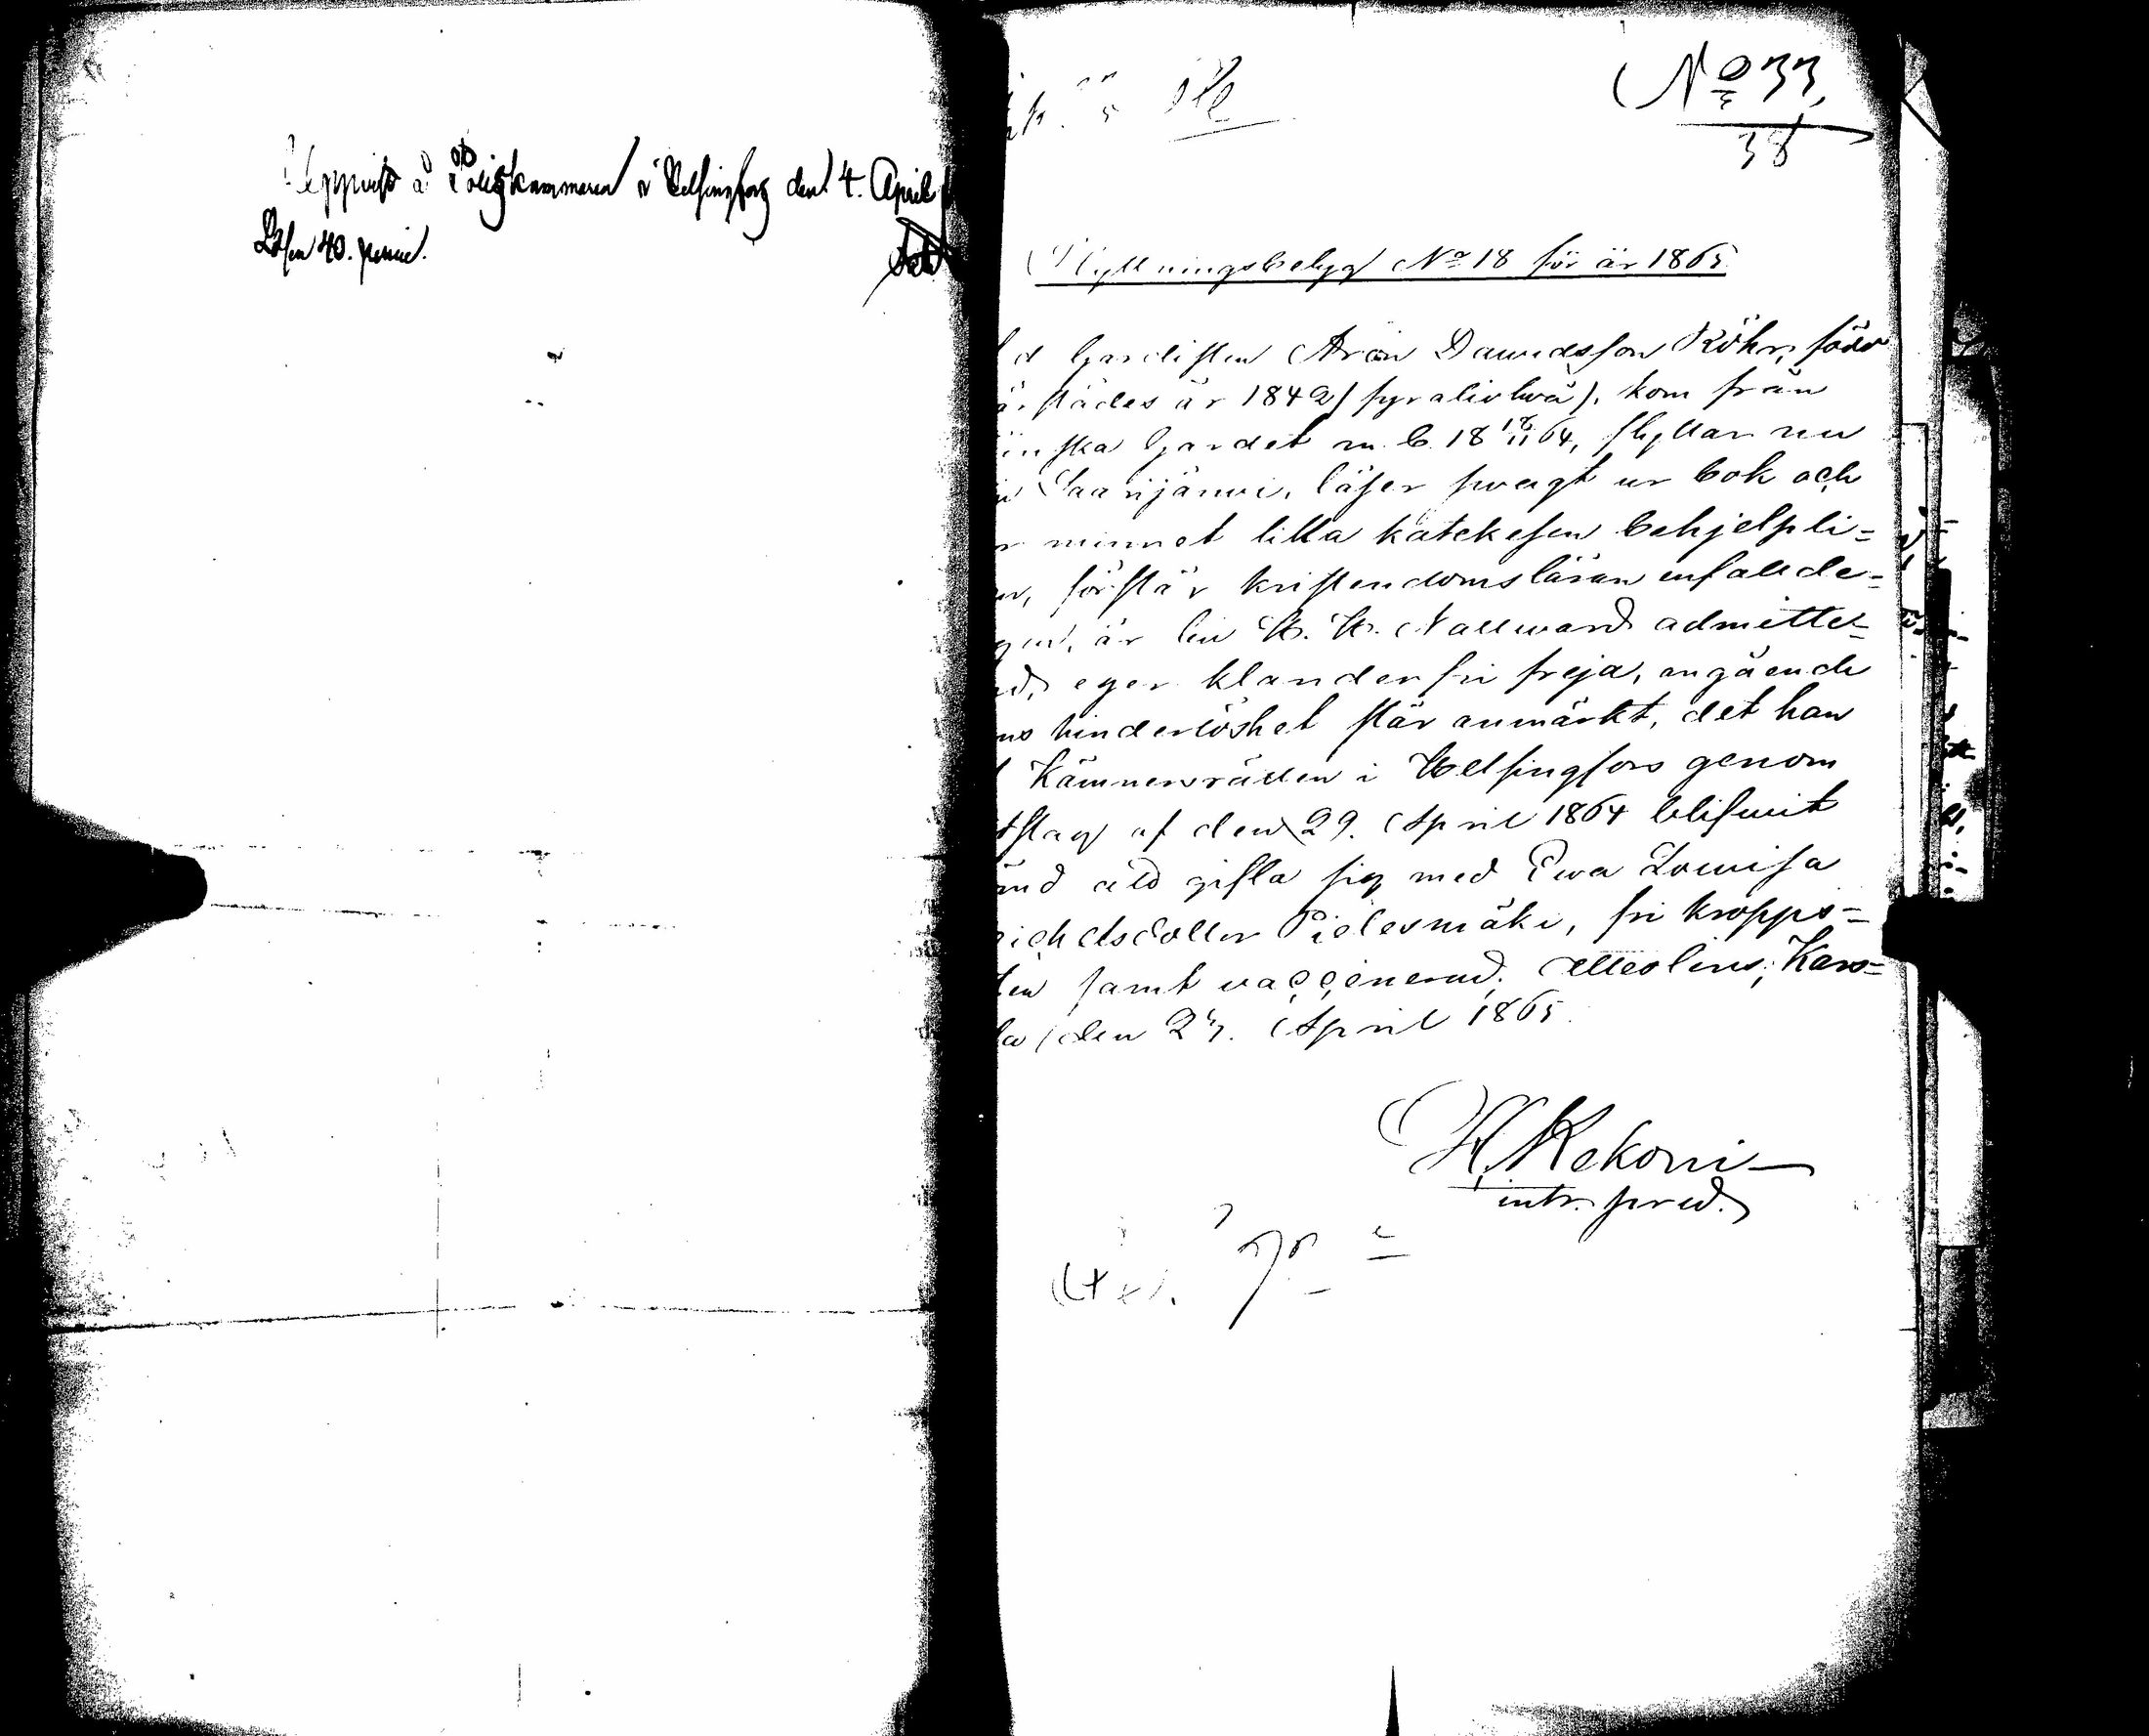 Uppvist å Poliskammaren i Helsingfors den 4. April
Lösen 40. penni.
No 33,
38
Flyttningsbetyg No 18 för år 1865
Gardisten Aron Dawidsson Röhr, född
städes år 1842 (fyratiotwå), kom från
ska Gardet m. b. 18 18/11 64, flyttar nu
Saarijärwi, läser swagt ur bok och
minnet lilla katekesen behjelpli=
förstår kristendomsläran enfalde=
är till H. H. Nattward admitte=
eger klanderfri frejd, angående
hinderlöshet står anmärkt, det han
Kämnersrätten i Helsingfors genom
utslag af den 29. April 1864 blifwit
att gifta sig med Ewa Lowisa
dsdotter Pielesmäki, fri kropps=
samt vaccinerad. Attesteras, Kars=
den 27. April 1865.
H. Kekoni
intr. pred.